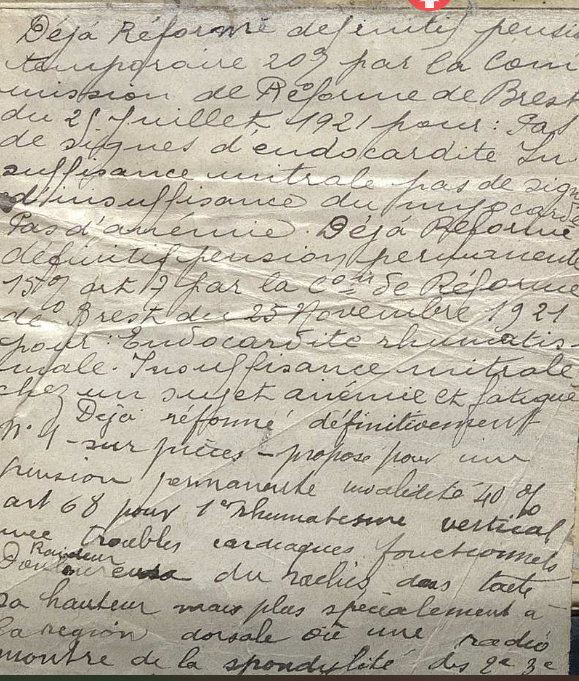 Déjà Réformé définitif pensi
temporaire 20% par la Com
mission de Réforme de Brest
du 25 Juillet 1921 pour: Pas
de signes d'endocardite In
suffisance mitrale pas de sig
d'insuffisance du myocarde
Pas d'anémie. Déjà Réformé
définitif pension permanente
15% art 2 par la Con de Réforme
de Brest du 25 Novembre 1921
pour: Endocardite rhumatis-
male. Insuffisance mitrale
chez un sujet anémié et fatigué
Déjà réformé définitivement
N° 1 - sur pièces - propose pour une
pension permanente modalité 40%
art 68 pour 1° rhumatisme vertical
avec troubles cardiaques fonctionnels
Raideur
du rachis dans toute
sa hauteur mais plus spécialement à
la région dorsale où une radio
montre de la spondylite des 2e 3e